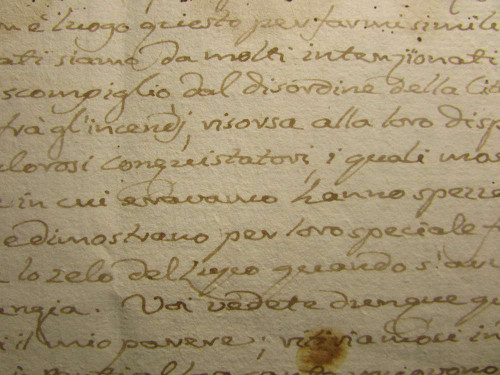 è luogo questo per farmi simile
ati siamo da molti intenzionati
scompiglio dal disordine della Cit
frà gl'incendj, risorsa alla loro disp
alorosi conquistatori, i quali mos
in cui eravamo hanno spezzo
e dimostrano per loro speciale
lo zelo del quando s'avi
angia. Voi vedete dunque q
il mio parere; ritiriamoci in